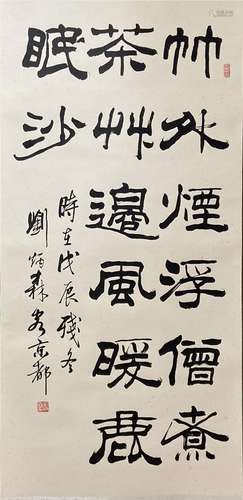 竹外煙浮僧煮
茶艸邊風暖鹿
眠沙
時在戊辰殘冬
劉炳森客京都